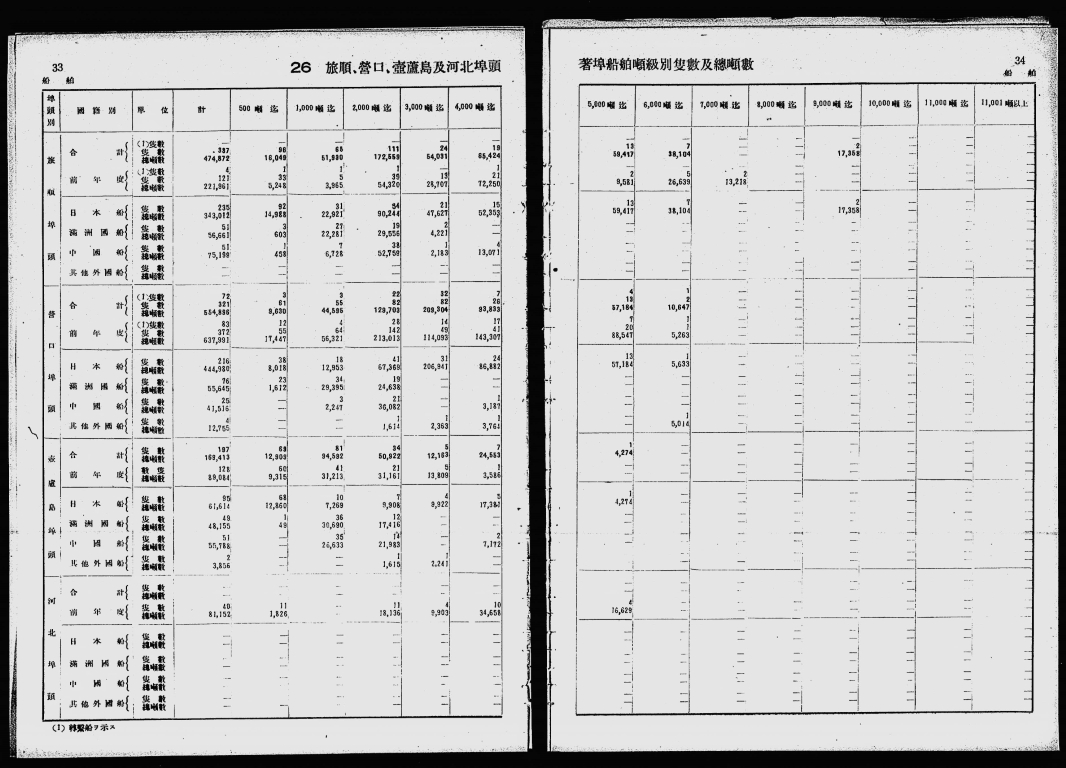 33
船 舶
26 旅順、營口、壺蘆島及河北埠頭
埠頭別 國籍別 單位 計 500噸迄 1,000噸迄 2,000噸迄 3,000噸迄 4,000噸迄
旅順埠頭
合計 (1)隻數
隻數 337 96 65 111 24 19
總噸數 474,872 16,049 51,930 172,559 54,031 65,424
前年度 (1)隻數 4 1 1 1 — 1
隻數 121 33 5 39 13 21
總噸數 221,961 5,248 3,965 54,320 28,707 72,250
日本船 隻數 235 92 31 54 21 15
總噸數 343,012 14,988 22,921 90,244 47,627 52,353
滿洲國船 隻數 51 3 27 19 2 —
總噸數 56,661 603 22,281 29,556 4,221 —
中國船 隻數 51 1 7 38 1 4
總噸數 75,199 458 6,728 52,759 2,183 13,071
其他外國船 隻數 — — — — — —
總噸數 — — — — — —
營口埠頭
合計 (1)隻數 72 3 3 22 32 7
隻數 321 61 55 82 82 26
總噸數 554,886 9,630 44,595 129,703 209,304 93,833
前年度 (1)隻數 83 12 4 28 14 17
隻數 372 55 64 142 49 41
總噸數 637,991 17,447 56,321 213,013 114,093 143,307
日本船 隻數 216 38 18 41 31 24
總噸數 444,980 8,018 12,953 67,369 206,941 86,882
滿洲國船 隻數 76 23 34 19 — —
總噸數 55,645 1,612 29,395 24,638 — —
中國船 隻數 25 — 3 21 — 1
總噸數 41,516 — 2,247 36,082 — 3,187
其他外國船 隻數 4 — — 1 1 1
總噸數 12,755 — — 1,614 2,363 3,764
壺蘆島埠頭
合計 隻數 197 69 81 34 5 7
總噸數 169,413 12,909 94,592 50,922 12,163 24,553
前年度 數隻 128 60 41 21 5 1
總噸數 89,084 9,315 31,213 31,161 13,809 3,586
日本船 隻數 95 68 10 7 4 5
總噸數 61,614 12,860 7,269 9,908 9,922 17,381
滿洲國船 隻數 49 1 36 12 — —
總噸數 48,155 49 30,690 17,416 — —
中國船 隻數 51 — 35 14 — 2
總噸數 55,788 — 26,633 21,983 — 7,172
其他外國船 隻數 2 — — 1 1 —
總噸數 3,856 — — 1,615 2,241 —
河北埠頭
合計 隻數 — — — — — —
總噸數 — — — — — —
前年度 隻數 40 11 — 11 4 10
總噸數 81,152 1,826 — 18,136 9,903 34,658
日本船 隻數 — — — — — —
總噸數 — — — — — —
滿洲國船 隻數 — — — — — —
總噸數 — — — — — —
中國船 隻數 — — — — — —
總噸數 — — — — — —
其他外國船 隻數 — — — — — —
總噸數 — — — — — —
(1) 轉繫船ヲ示ス
34
船 舶
著埠船舶噸級別隻數及總噸數
5,000噸迄 6,000噸迄 7,000噸迄 8,000噸迄 9,000噸迄 10,000噸迄 11,000噸迄 11,001噸以上
13 7 — — 2 — — —
59,417 38,104 — — 17,358 — — —
2 5 2 — — — — —
9,581 26,639 13,218 — — — — —
13 7 — — 2 — — —
59,417 38,104 — — 17,358 — — —
4 1
13 2
57,184 10,647
7 1
20 1
88,547 5,263
13 1
57,184 5,633
1
5,014
1
4,274
1
4,274
4
16,629